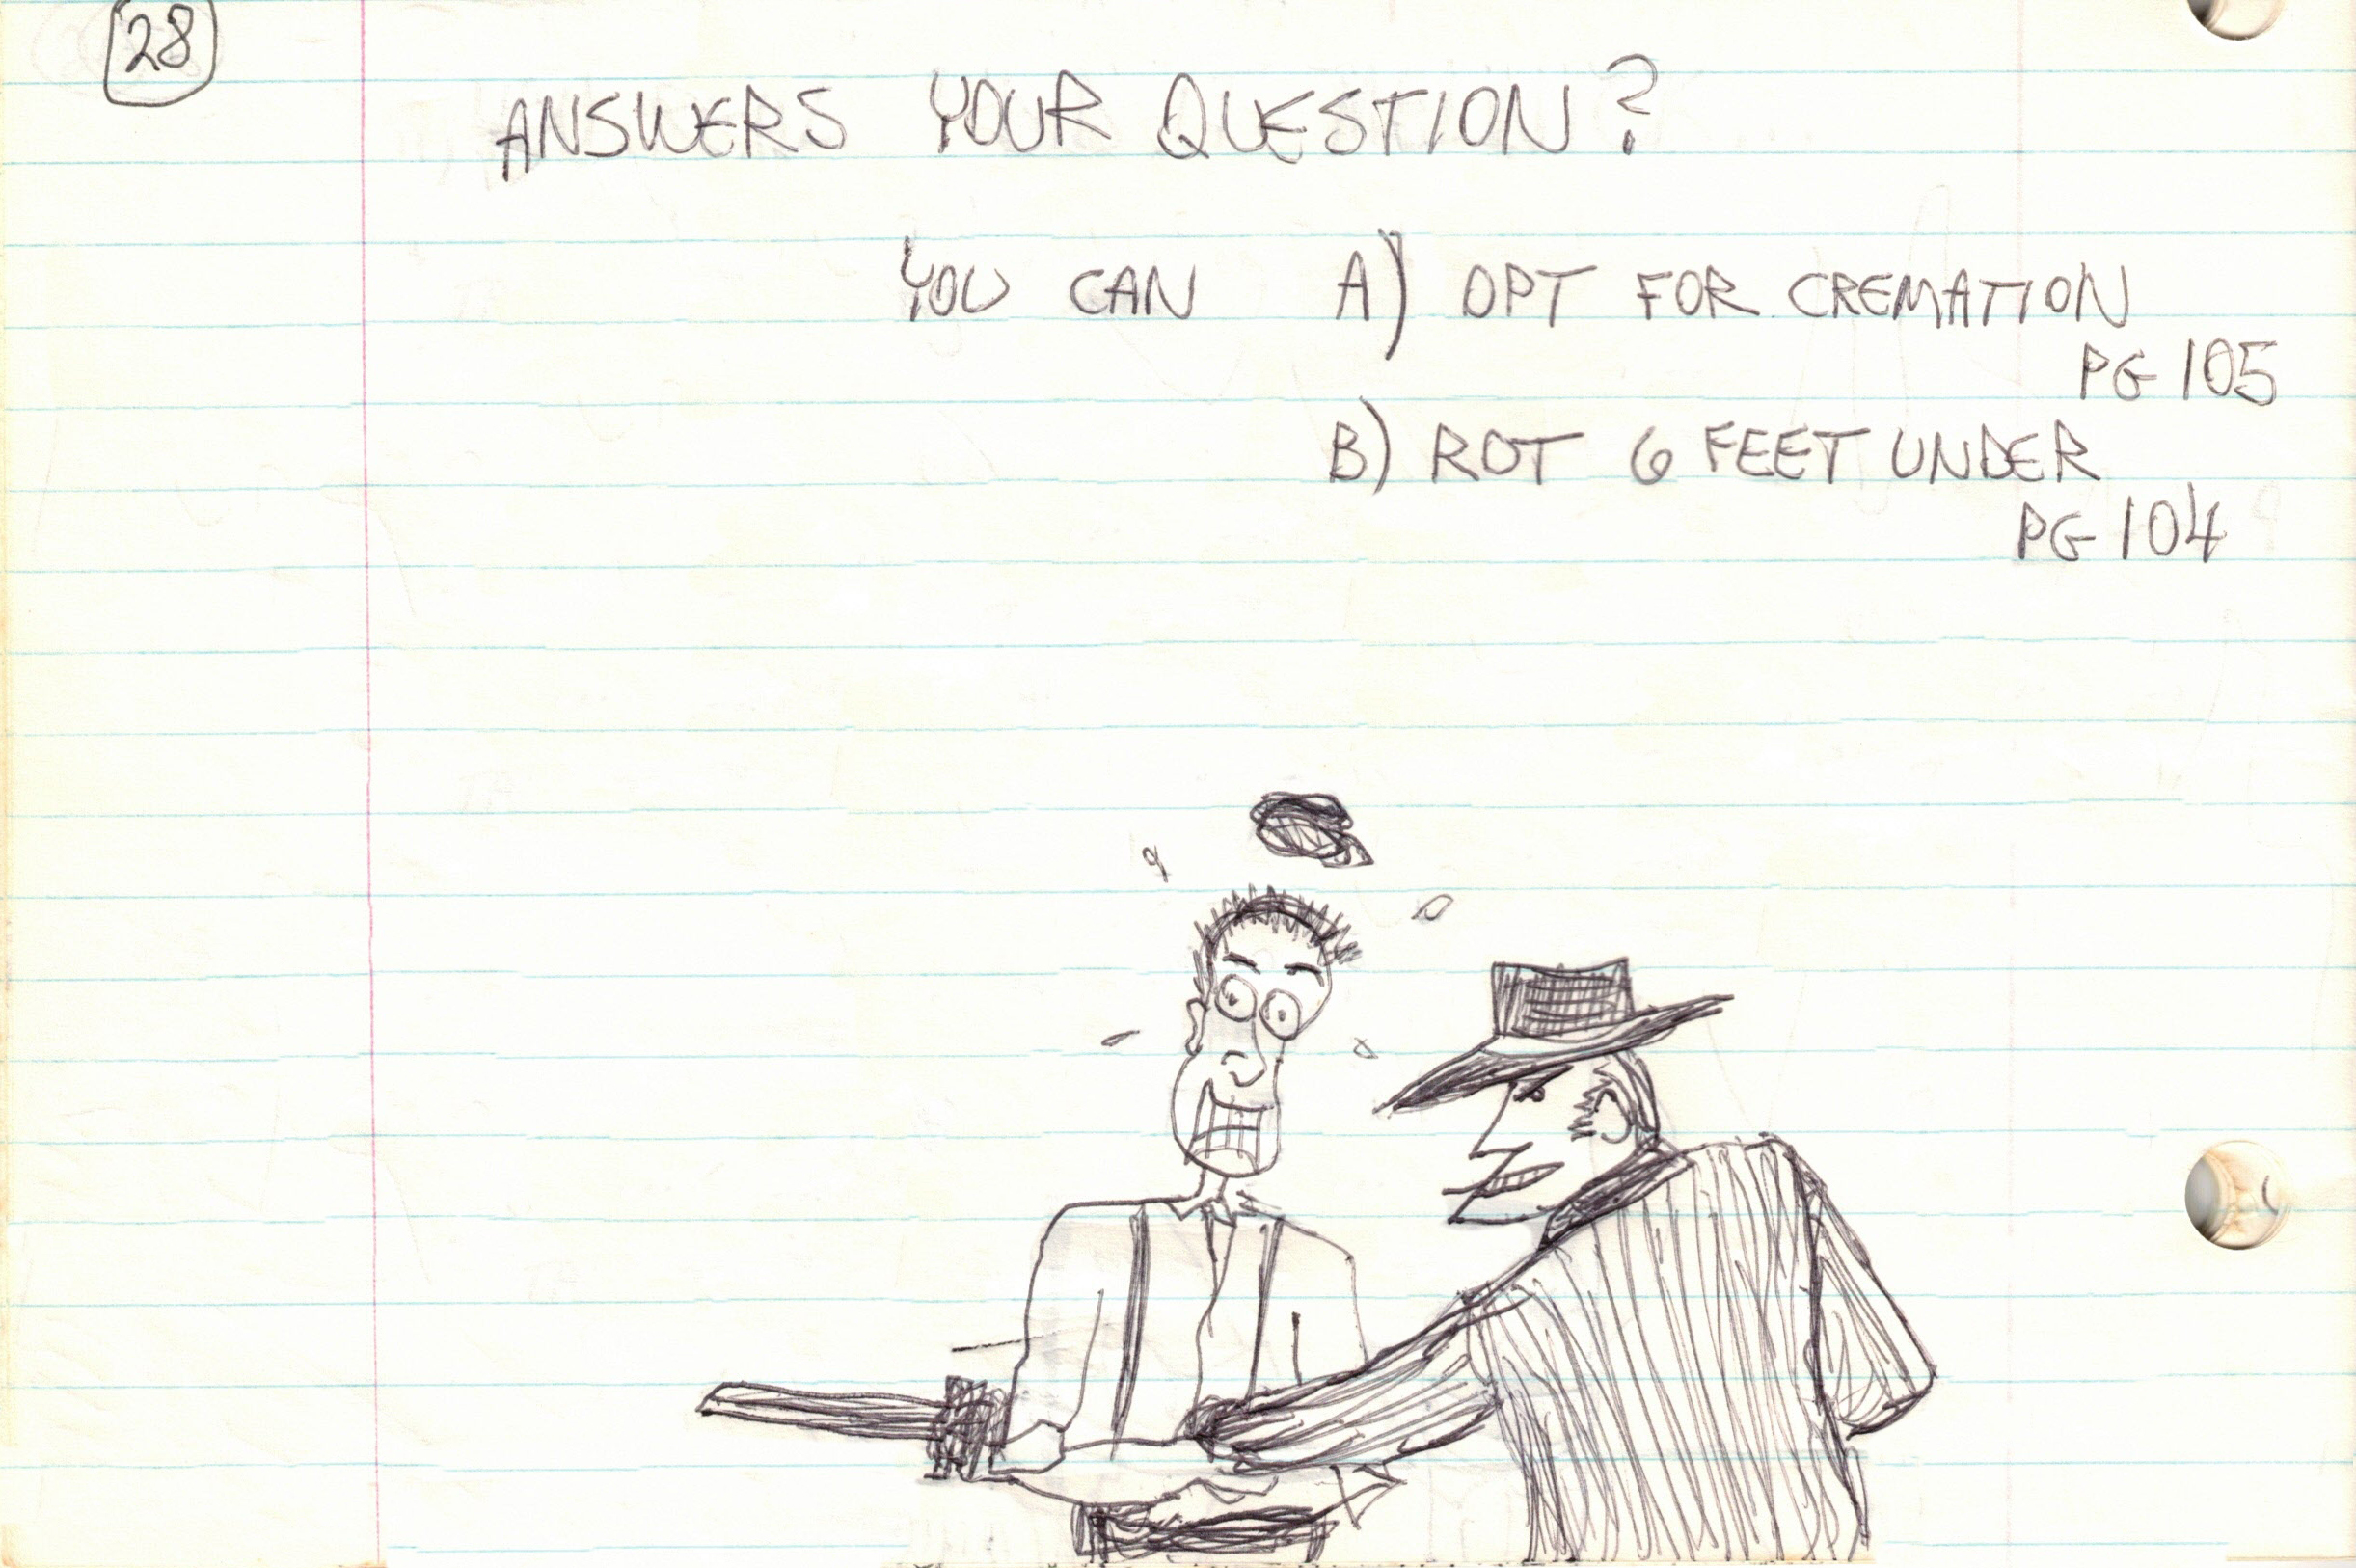 28
ANSWERS YOUR QUESTION?
YOU CAN A) OPT FOR CREMATION
PG 105
B) ROT 6 FEET UNDER
PG 104